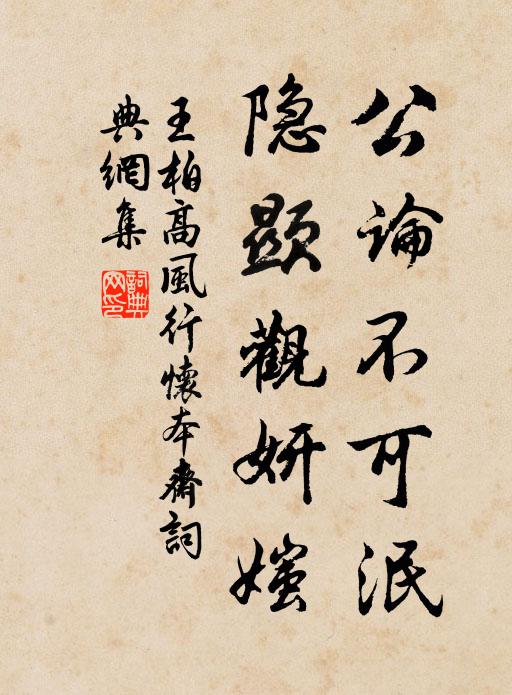 公論不可泯
隐顯觀妍媸
王柏高風行懷本齋詞
典網集
詞典网印